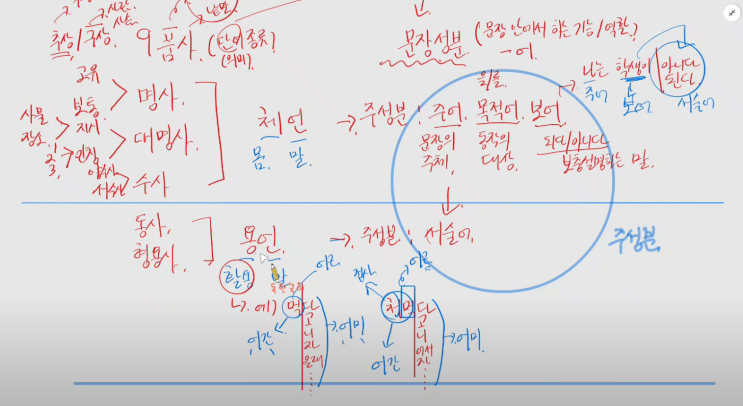 추상/구상. 9품사. (단어 종류?)
(의미).
문장성분. (문장 안에서 하는 기능/역할?)
-어.
고유
보통 > 명사.
사물
장소
지시
인칭 > 대명사.
양수사
서수사 > 수사
체언
몸. 말.
→ 주성분 : 주어. 목적어. 보어.
을/를.
문장의 주체,
동작의 대상.
되다/아니다
보충설명하는 말.
나는 학생이 아니다
된다
주어 보어. 서술어
동사.
형용사. 용언. → 주성분 : 서술어.
주성분.
활용 말
어근
접사 어근
↳ 예) 먹다
고
니
자
→ 어미
어간
첫먹다
고
니
어서
자
→ 어미.
어간